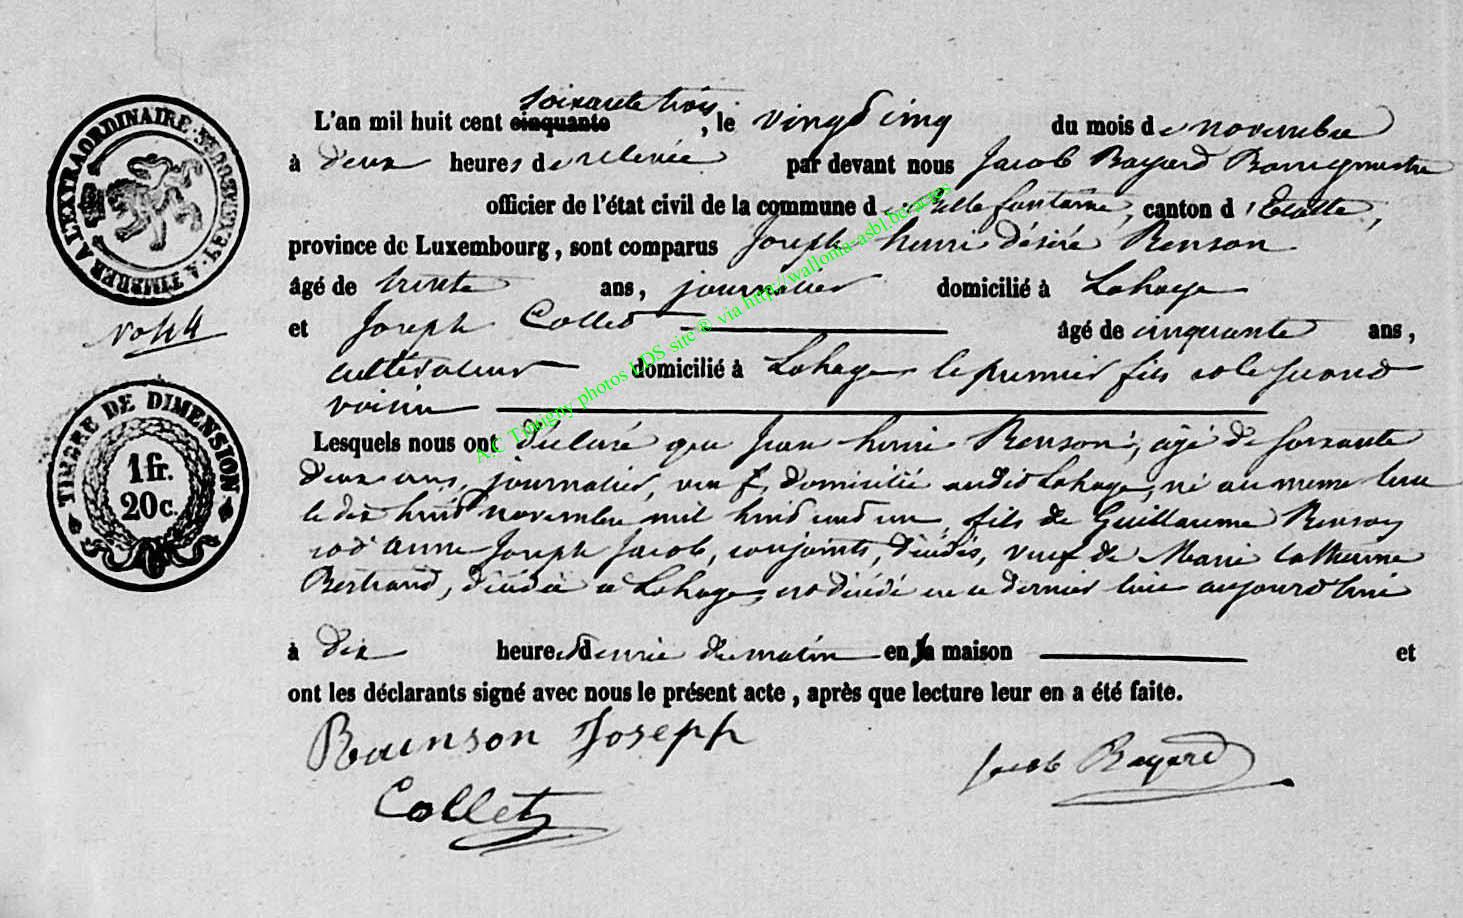 soixante trois
L'an mil huit cent cinquante , le vingt cinq du mois de novembre
à deux heures de relevée par devant nous Jacob Bayard Bourgmestre
officier de l'état civil de la commune de Bellefontaine, canton d'Etalle,
province de Luxembourg, sont comparus Joseph henri désiré Renson
âgé de trente ans, journalier domicilié à Lahage
et Joseph Collet âgé de cinquante ans,
cultivateur domicilié à Lahage le premier fils et le second
voisin
Lesquels nous ont déclaré que Jean henri Renson, âgé de soixante
deux ans, journalier, veuf, domicilié audit Lahage, né au meme lieu
le dix huit novembre mil huit cent un, fils de Guillaume Renson
et d'Anne Joseph Jacob, conjoints, décédés, veuf de Marie Catherine
Bertrand, décédée a Lahage, est décédé en ce dernier lieu aujourd'hui
à dix heures demie du matin en sa maison et
ont les déclarants signé avec nous le présent acte, après que lecture leur en a été faite.
Raunson Joseph
Jacob Bayard
Collet
TIMBRE A L'EXTRAORDINAIRE
No 44
TIMBRE DE DIMENSION
1 fr.
20 c.
A.C Tintigny photos LDS sitc® via http://wallonia-asbl.be/actes